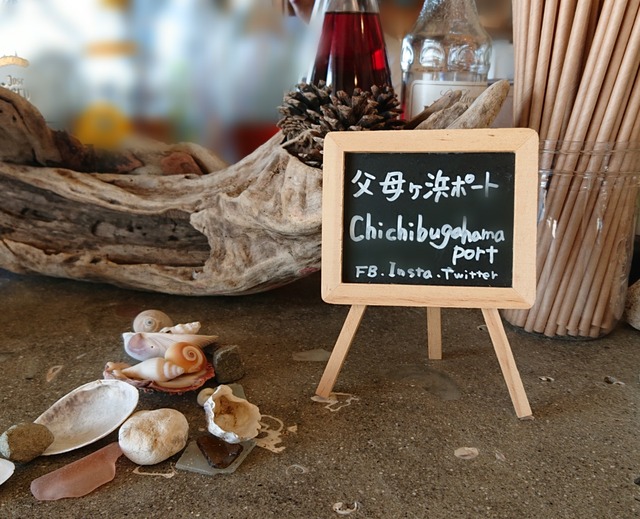 父母ヶ浜ポート
Chichibugahama
port
FB. Insta. Twitter
Jose